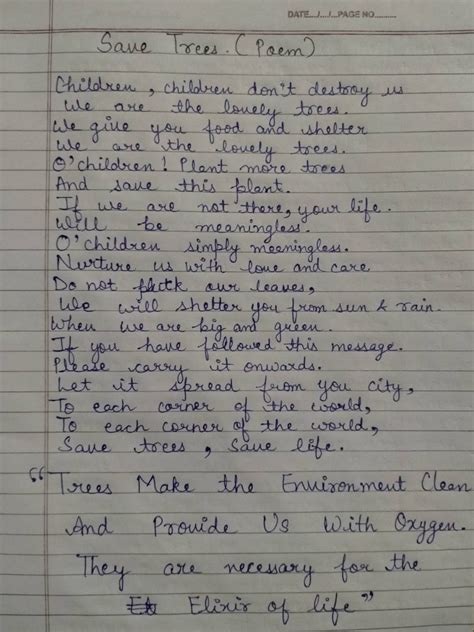 DATE..../..../....PAGE NO...........
Save Trees. (Poem)
Children, children don't destroy us
We are the lovely trees.
We give you food and shelter
We are the lovely trees.
O'children! Plant more trees
And save this plant.
If we are not there, your life.
Will be meaningless.
O'children simply meeningless.
Nurture us with love and care
Do not our leaves,
We will shelter you from sun & rain.
When we are big and green.
If you have followed this message.
Please carry it onwards.
Let it spread from you city,
To each corner of the world,
To each corner of the world,
Save trees, Save life.
"Trees Make the Environment Clean
And Provide Us With Oxygen.
They are necessary for the
Elixir of life"